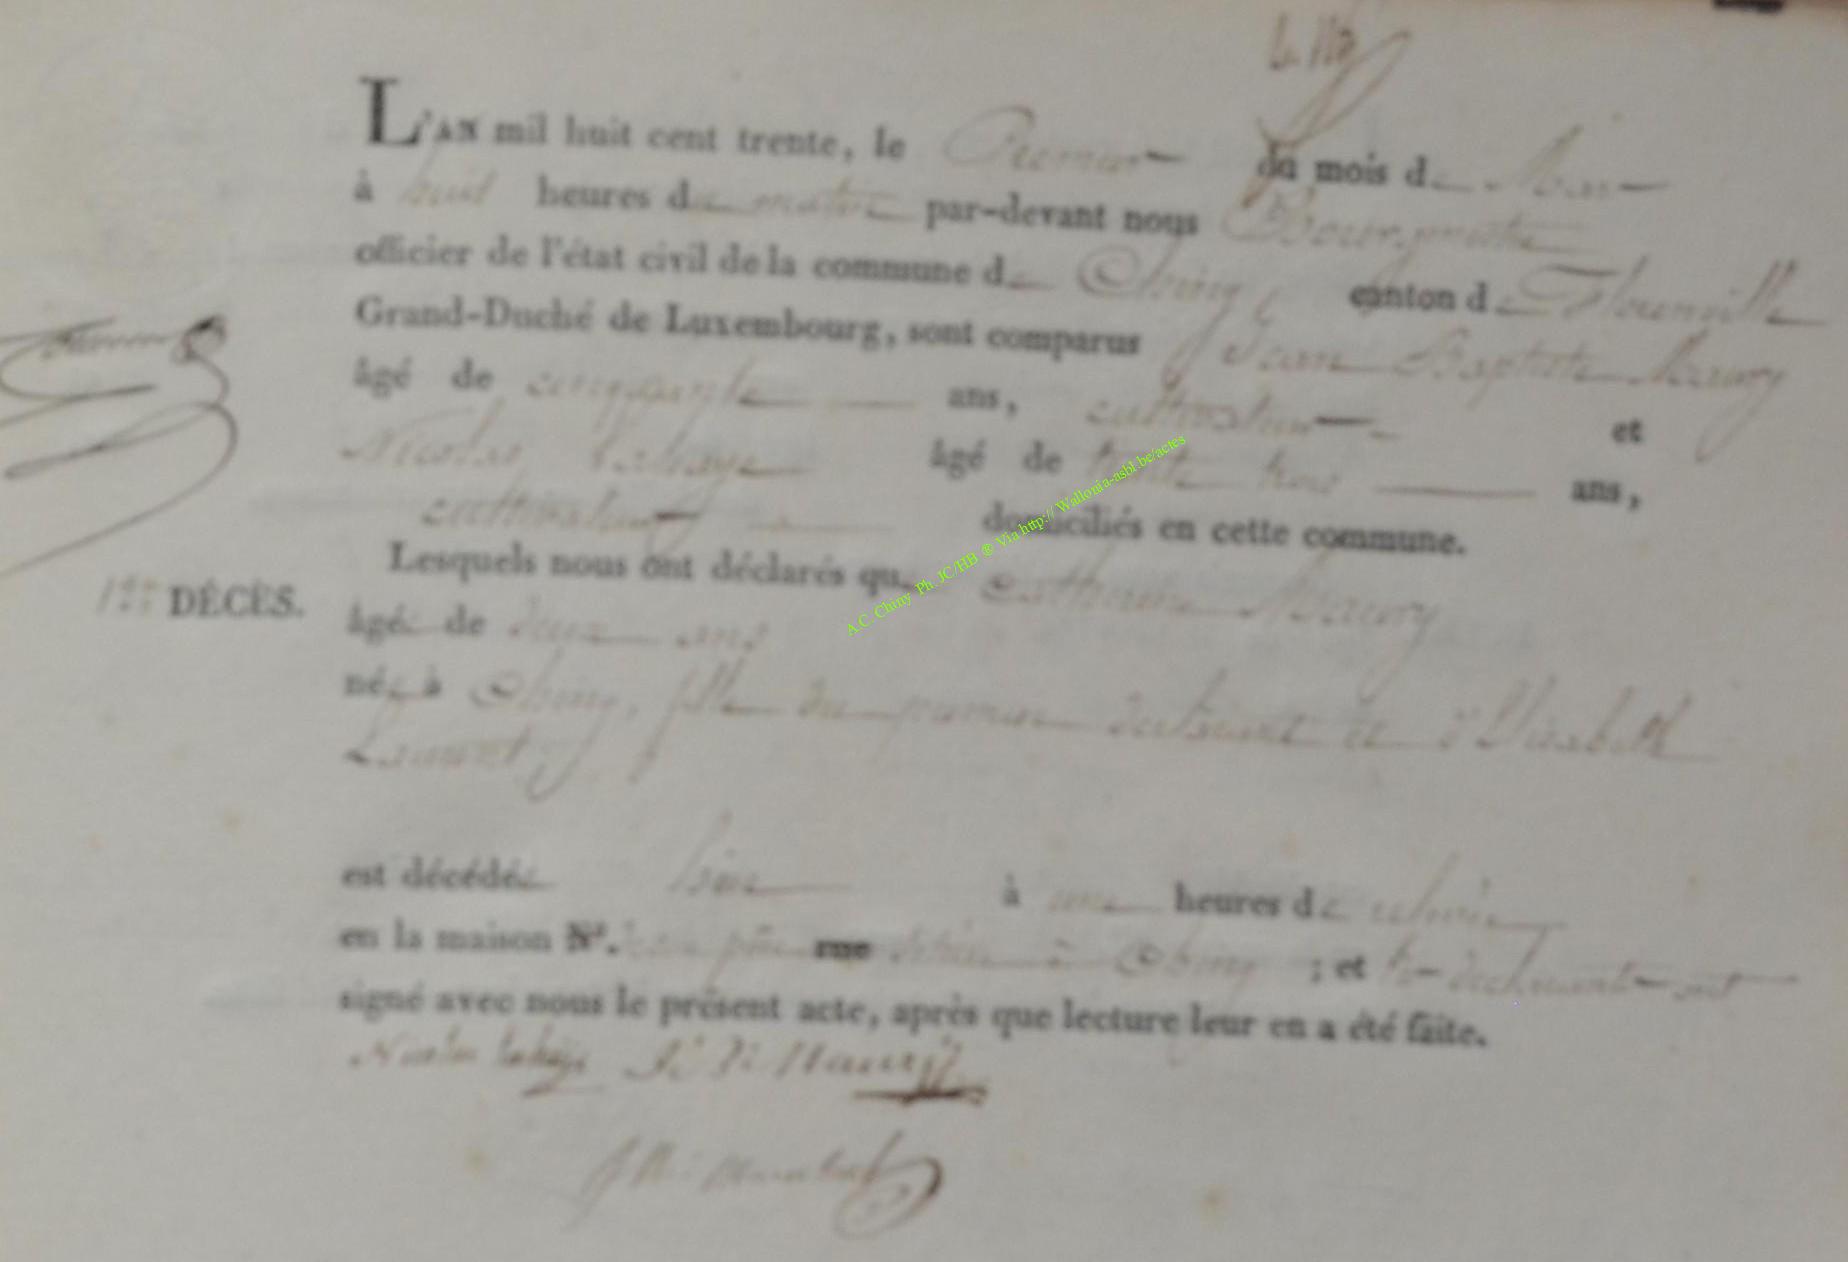 L'AN mil huit cent trente, le Premier du mois de Mars
à huit heures du matin par-devant nous Bourgmestre
officier de l'état civil de la commune de Chiny, canton de Florenville
Grand-Duché de Luxembourg, sont comparus Jean Baptiste Maury
âgé de cinquante ans, cultivateur et
Nicolas Lahaye âgé de trente trois ans,
cultivateur domiciliés en cette commune.
Lesquels nous ont déclarés que Catherine Maury
1er DÉCÈS.
âgée de deux ans
née à Chiny, fille du premier déclarant et d'Elisabeth
Laurent
est décédée hier à une heures de relevée
en la maison N°. père rue à Chiny ; et les déclarants ont
signé avec nous le présent acte, après que lecture leur en a été faite.
Nicolas Lahaye J B Maury
A.C. Chiny Ph. JC/HB ® Via http:// Wallonia-asbl.be/actes